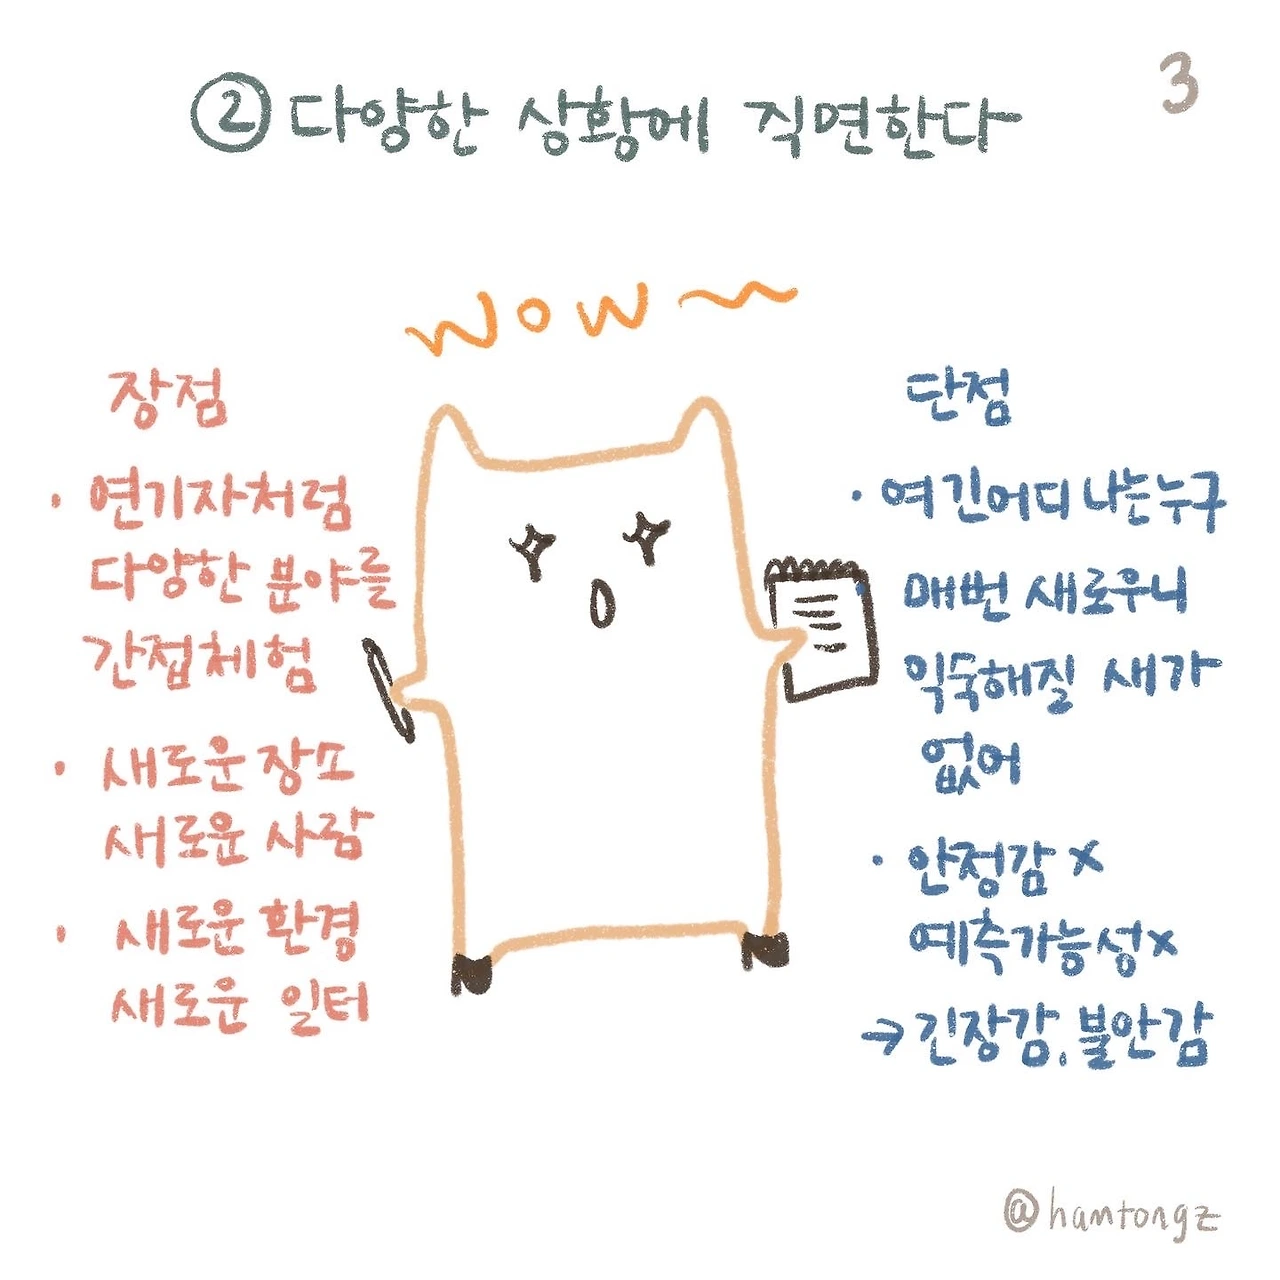 ② 다양한 상황에 직면한다
3
WOW~
장점
· 연기자처럼
다양한 분야를
간접체험
· 새로운 장소
새로운 사람
· 새로운 환경
새로운 일터
단점
· 여긴어디 나는누구
매번 새로우니
익숙해질 새가
없어
· 안정감 x
예측가능성x
→ 긴장감, 불안감
@hamtongz